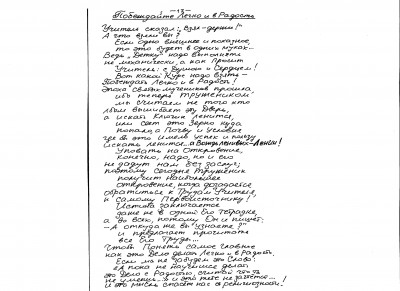 -13-
Побеждайте Легко и в Радость
Учитель сказал: "Взял - держи!"
А что взяли вы?
Если одно внешнее и показное,
то это будет в одних муках...
Ведь "Ветку" надо выполнять
не механически, а как просит
Учитель: с Душою и Сердцем!
Вот какой Курс надо взять -
Побеждать Легко и в Радость!
Эпоха святых мучеников прошла
ибо теперь Тружеником
мы считаем не того кто
лбом вышибает эту Дверь,
а искать Ключик ленится,
или сеет это Зерно куда
попало, а Почву и Условие
где бы это имело успех и пользу
искать ленится, а Вождь ленивых - Ленин!
Уповать на Откровение,
конечно, надо, но и его
не дадут нам без заслуг;
поэтому сегодня Труженик
получит наивысшее
откровение, когда догадается
обратиться к Трудам Учителя,
к Самому Первоисточнику!
Истина заключается
даже не в одной Его Тетрадке,
а во всех, потому Он и пишет:
- А откуда же вы "узнаете"?
и предлагает прочитать
все Его Труды...
Чтобы Понять самое главное
как это Дело делать Легко и в Радость.
Если мы не забудем это Слово:
"А пока не научишься делать
это Дело с Радостью, считай что ты
не умеешь..." и это тебе не работа...!
и эта мысль спасёт нас от религиозности.